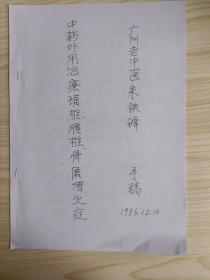 广州老中医朱铁锋 手稿
1986.12.10
中药外用治療颈椎、腰椎、骨质增生症